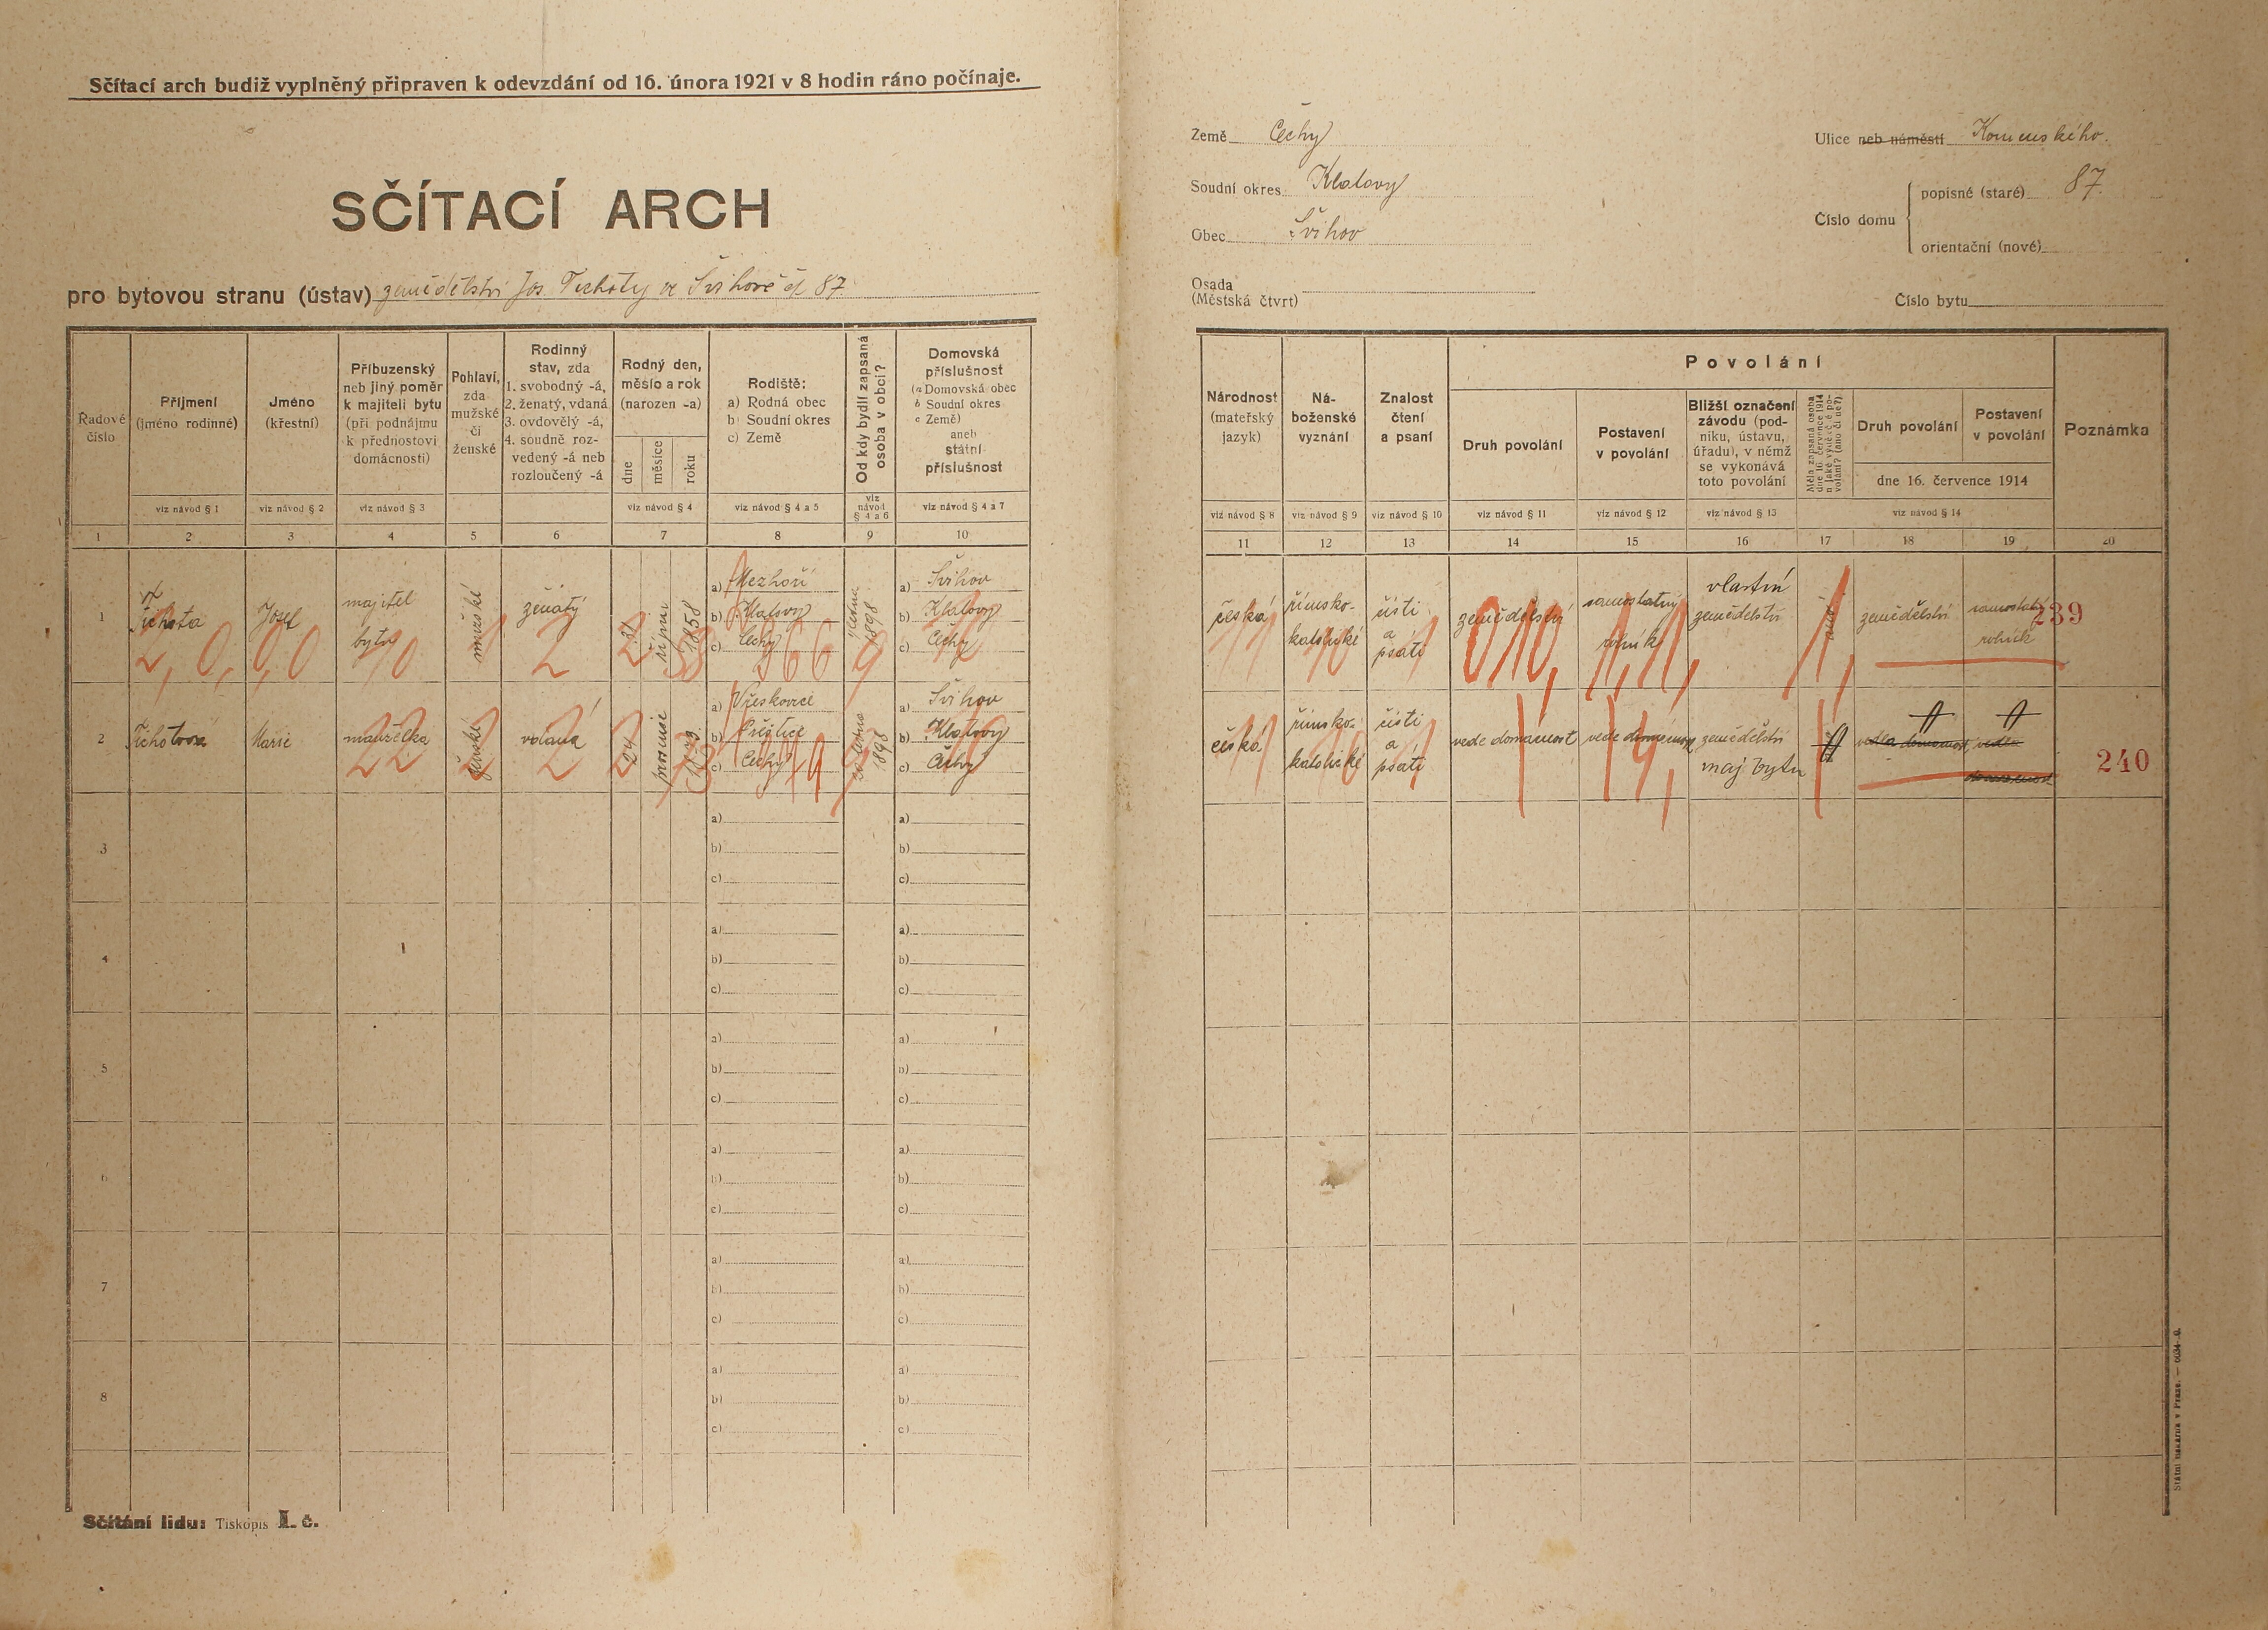 Sčítací arch budiž vyplněný připraven k odevzdání od 16. února 1921 v 8 hodin ráno počínaje.
SČÍTACÍ ARCH
pro bytovou stranu (ústav) zemědělství Jos. Tichoty ve Švihově čp. 87
Země Čechy
Soudní okres Klatovy
Obec Švihov
Osada
(Městská čtvrt)
Ulice neb náměstí Komenského.
Číslo domu
popisné (staré) 87.
orientační (nové)
Číslo bytu
Řadové číslo
Příjmení (jméno rodinné)
viz návod § 1
Jméno (křestní)
viz návod § 2
Příbuzenský neb jiný poměr k majiteli bytu (při podnájmu k přednostovi domácnosti)
viz návod § 3
Pohlaví, zda mužské či ženské
Rodinný stav, zda
1. svobodný -á,
2. ženatý, vdaná
3. ovdovělý -á,
4. soudně rozvedený -á neb rozloučený -á
Rodný den, měsíc a rok (narozen -a)
dne
měsíce
roku
viz návod § 4
Rodiště:
a) Rodná obec
b) Soudní okres
c) Země
viz návod § 4 a 5
Od kdy bydlí zapsaná osoba v obci?
viz návod § 4 a 6
Domovská příslušnost
(a Domovská obec
b Soudní okres
c Země)
aneb
státní příslušnost
viz návod § 4 a 7
1 2 3 4 5 6 7 8 9 10
Národnost (mateřský jazyk)
viz návod § 8
Náboženské vyznání
viz návod § 9
Znalost čtení a psaní
viz návod § 10
Povolání
Druh povolání
viz návod § 11
Postavení v povolání
viz návod § 12
Bližší označení závodu (podniku, ústavu, úřadu), v němž se vykonává toto povolání
viz návod § 13
Měla zapsaná osoba dne 16. července 1914 nějaké výdělečné povolání? (ano či ne?)
Druh povolání
Postavení v povolání
dne 16. července 1914
viz návod § 14
Poznámka
11 12 13 14 15 16 17 18 19 20
1
Tichota
Josef
majitel bytu
mužské
ženatý
31
října
1858
a) Mezhoří
b) Klatovy
c) Čechy
1898
a) Švihov
b) Klatovy
c) Čechy
česká
římsko-katolické
čísti a psáti
zemědělství
samostatný rolník
vlastní zemědělství
ano
zemědělství
samostatný rolník
239
2, 0, 0, 0
10
2
2
58
366
9
10
11
10
1
010,
1,1,
1,
2
Tichotová
Marie
manželka
ženské
vdaná
24
prosince
a) Vřeskovice
b) Přeštice
c) Čechy
1898
a) Švihov
b) Klatovy
c) Čechy
česká
římsko-katolické
čísti a psáti
vede domácnost
vede domácnost
zemědělství maj bytu
vedla domácnost
vedla domácnost
240
22
2
2
2
73
9
10
11
10
1
3
a)
b)
c)
a)
b)
c)
4
a)
b)
c)
a)
b)
c)
5
a)
b)
c)
a)
b)
c)
6
a)
b)
c)
a)
b)
c)
7
a)
b)
c)
a)
b)
c)
8
a)
b)
c)
a)
b)
c)
Sčítání lidu: Tiskopis I. č.
Státní tiskárna v Praze.